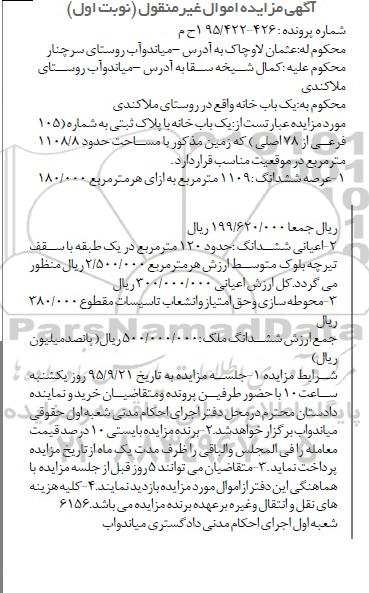 آگهی مزایده اموال غیر منقول (نوبت اول)
شماره پرونده : ۴۲۶-۹۵/۴۲۲ ۱ح م
محکوم له:عثمان لاوچاک به آدرس –میاندوآب روستای سرچنار
محکوم علیه :کمال شیخه سقا به آدرس –میاندوآب روستای
ملاکندی
محکوم به:یک باب خانه واقع در روستای ملاکندی
مورد مزایده عبارتست از:یک باب خانه با پلاک ثبتی به شماره (۱۰۵
فرعی از ۷۸ اصلی ) که زمین مذکور با مساحت حدود ۱۱۰۸/۸
متر مربع در موقعیت مناسب قرار دارد.
۱-عرصه ششدانگ : ۱۱۰۹ متر مربع به ازای هر متر مربع ۱۸۰/۰۰۰
ریال جمعا ۱۹۹/۶۲۰/۰۰۰ ریال
۲-اعیانی ششدانگ :حدود ۱۲۰ متر مربع در یک طبقه با سقف
تیرچه بلوک متوسط ارزش هر متر مربع ۲/۵۰۰/۰۰۰ ریال منظور
می گردد.کل ارزش اعیانی ۳۰۰/۰۰۰/۰۰۰ ریال
۳-محوطه سازی وحق امتیاز وانشعاب تاسیسات مقطوع ۳۸۰/۰۰۰
ریال
جمع ارزش ششدانگ ملک :۵۰۰/۰۰۰/۰۰۰ ریال( پانصدمیلیون
ریال)
شرایط مزایده ۱-جلسه مزایده به تاریخ ۹۵/۹/۲۱ روز یکشنبه
ساعت ۱۰ با حضور طرفین پرونده ومتقاضیان خرید و نماینده
دادستان محترم درمحل دفتر اجرای احکام مدنی شعبه اول حقوقی
میاندواب برگزار خواهدشد.۲-برنده مزایده بایستی ۱۰ درصدقیمت
معامله را فی المجلس والباقی را ظرف مدت یک ماه از تاریخ مزایده
پرداخت نماید.۳-متقاضیان می توانند ۵ روز قبل از جلسه مزایده با
هماهنگی این دفتر ازاموال مورد مزایده بازدید نمایند.۴-کلیه هزینه
های نقل و انتقال وغیره برعهده برنده مزایده می باشد.۶۱۵۶
شعبه اول اجرای احکام مدنی دادگستری میاندواب
ParsNamadData
۰۲۱-۸۸۳۴۹۶۷۰-۵